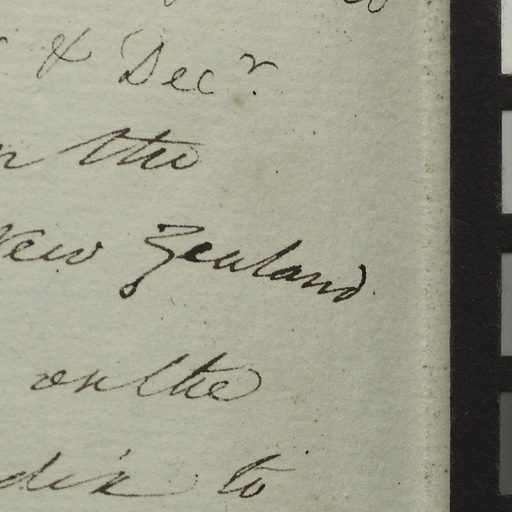 & Decr.
the
New Zealand
on the
to